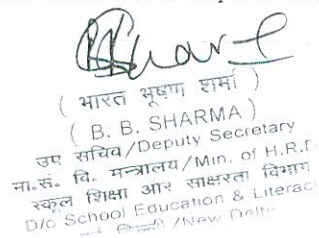 ( भारत भूषण शर्मा )
( B. B. SHARMA )
उप सचिव/Deputy Secretary
मा.सं. वि. मन्त्रालय/Min. of H.R.D
स्कूल शिक्षा और साक्षरता विभाग
D/o School Education & Literac
/New Delhi